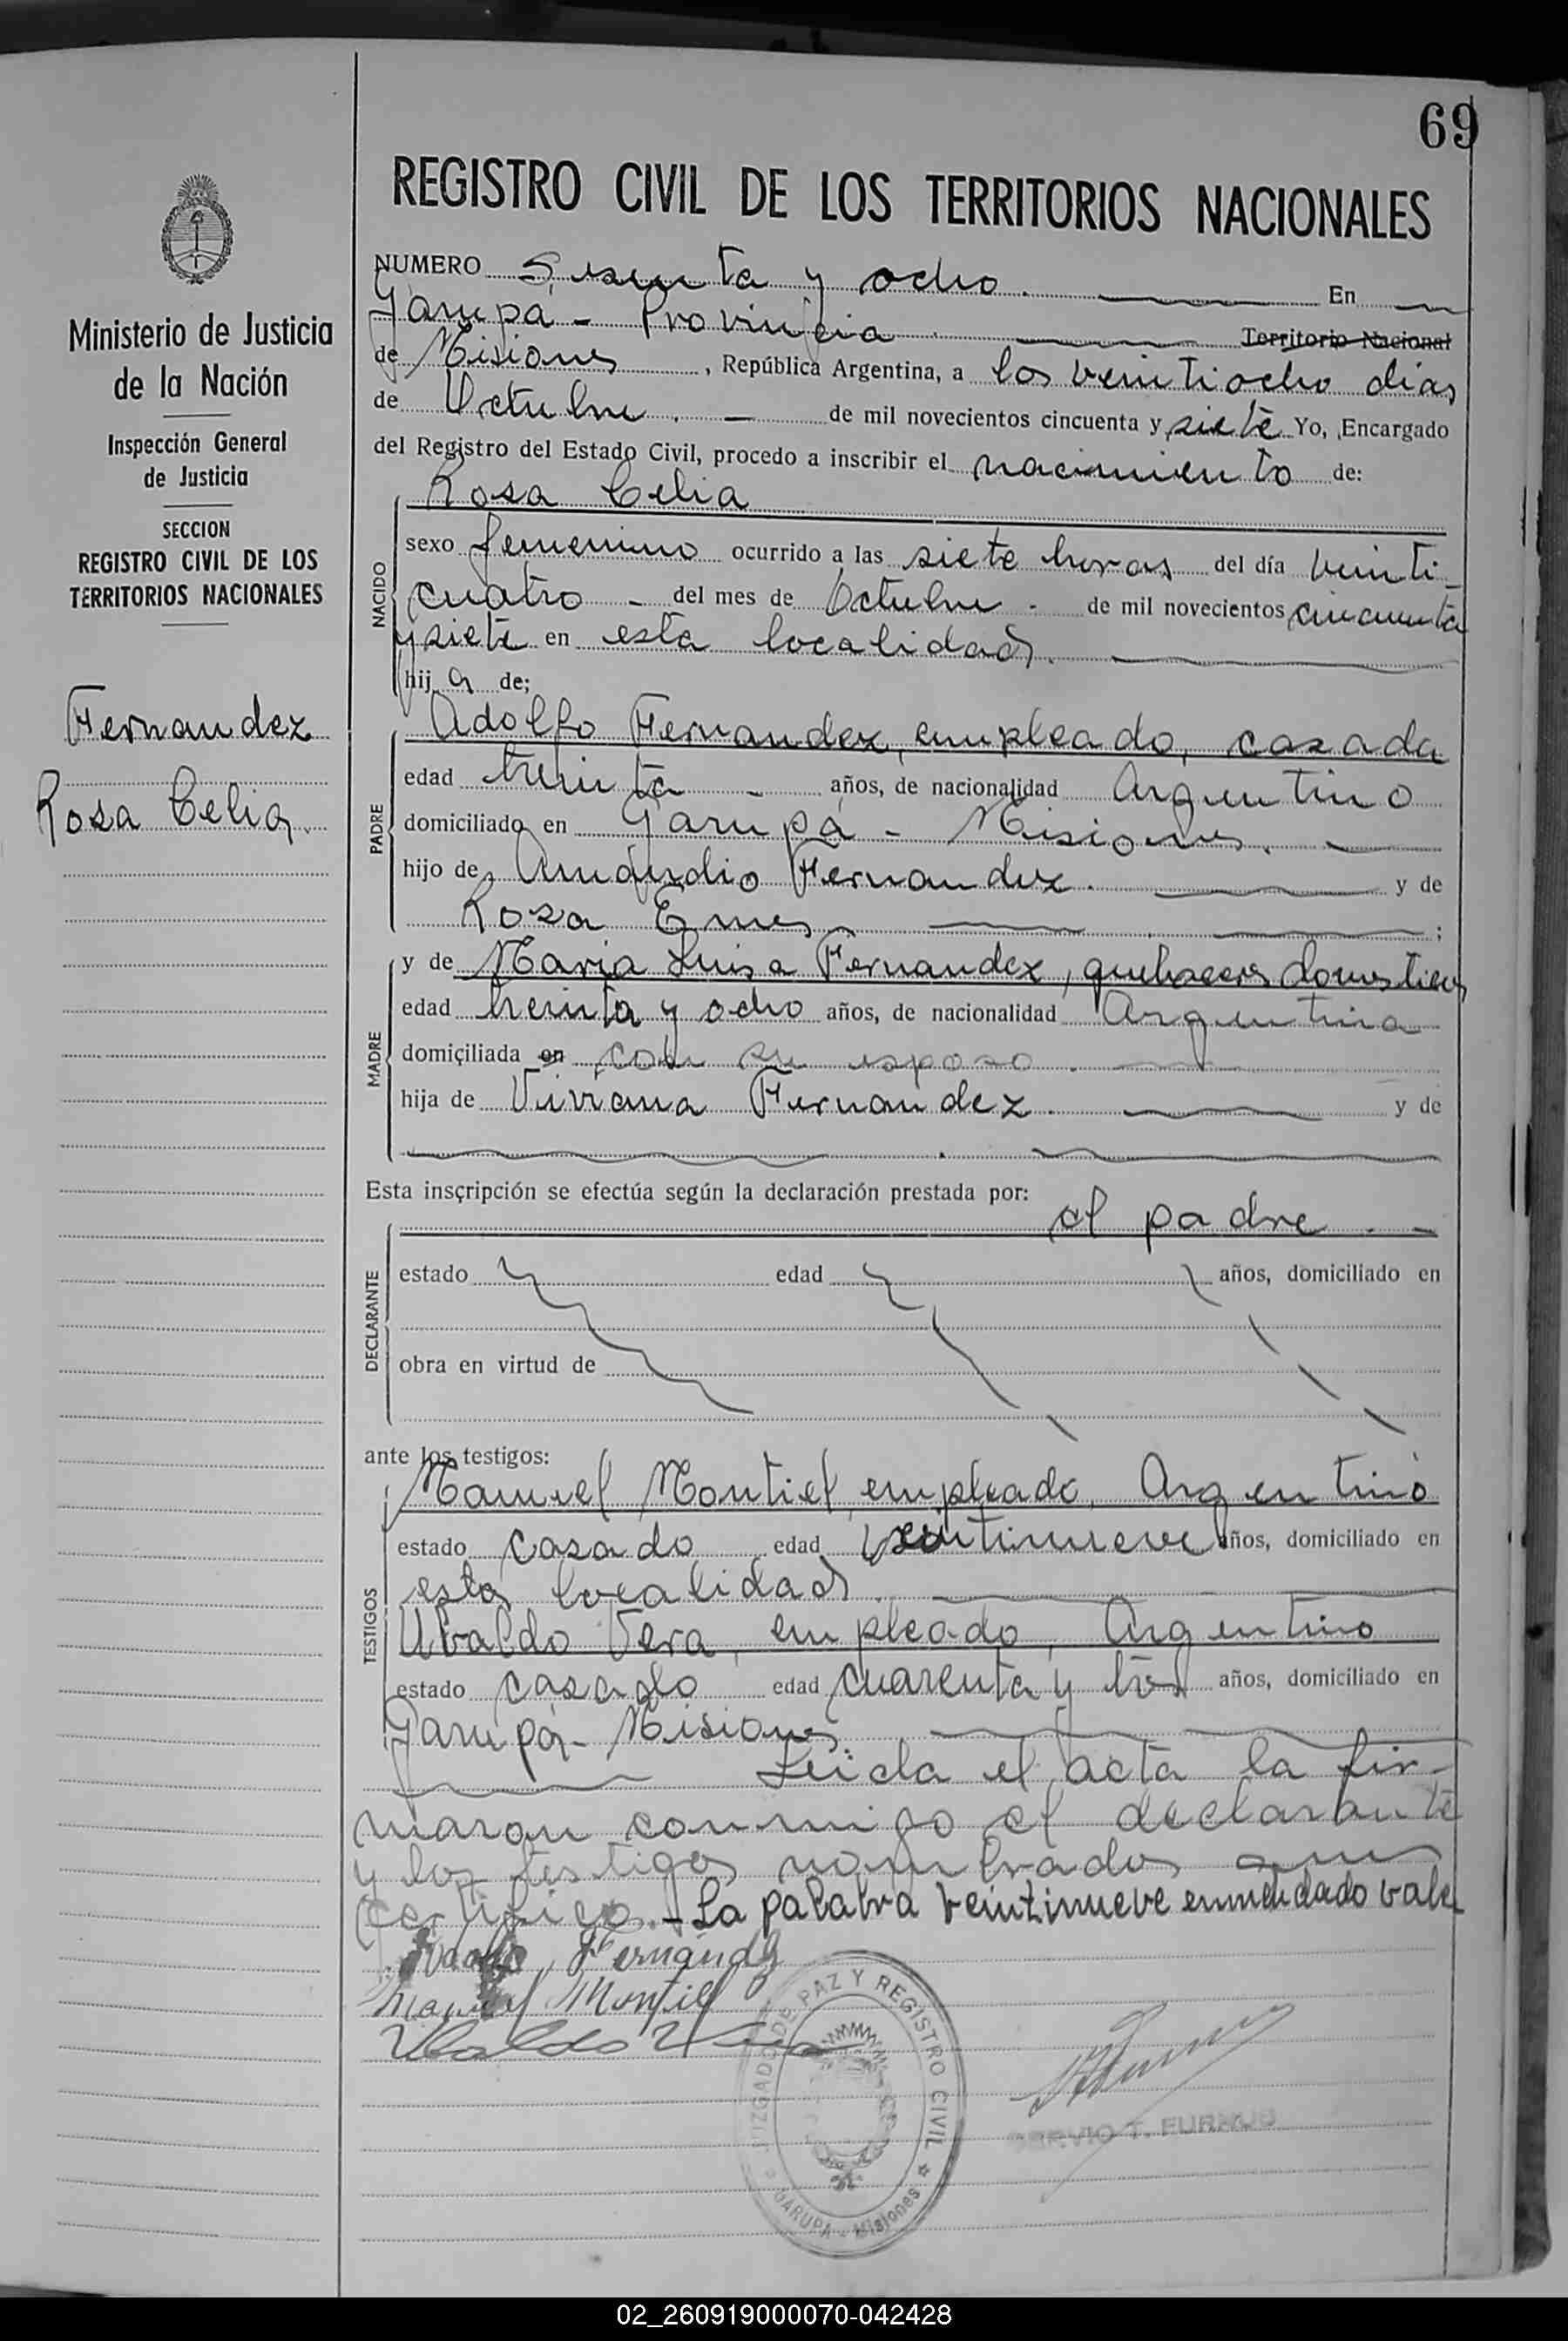 69
REGISTRO CIVIL DE LOS TERRITORIOS NACIONALES
Ministerio de Justicia
de la Nación
Inspección General
de Justicia
SECCION
REGISTRO CIVIL DE LOS
TERRITORIOS NACIONALES
Fernandez
Rosa Celia.
NUMERO Sesenta y ocho. En
Garupá - Provincia Territorio Nacional
de Misiones, República Argentina, a los veintiocho días
de Octubre. - de mil novecientos cincuenta y siete Yo, Encargado
del Registro del Estado Civil, procedo a inscribir el nacimiento de:
Rosa Celia
NACIDO
sexo femenino ocurrido a las siete horas del día veinti-
cuatro - del mes de Octubre - de mil novecientos cincuenta
y siete en esta localidad.
hija de;
PADRE
Adolfo Fernandez, empleado, casada
edad treinta - años, de nacionalidad Argentino
domiciliado en Garupá - Misiones. -
hijo de Fernandez. y de
Rosa ;
MADRE
y de Maria Luisa Fernandez, quehaceres domesticos
edad treinta y ocho años, de nacionalidad Argentina
domiciliada en con su esposo.
hija de Viviana Fernandez. y de
Esta inscripción se efectúa según la declaración prestada por:
el padre. -
DECLARANTE
estado edad años, domiciliado en
obra en virtud de
ante los testigos:
TESTIGOS
Manuel Montiel, empleado, Argentino
estado casado edad veintinueve años, domiciliado en
esta localidad.
Ubaldo Vera, empleado, Argentino
estado casado edad cuarenta y tres años, domiciliado en
Garupá - Misiones.
Leida el acta la fir-
maron conmigo el declarante
y los testigos nombrados que
certifico. - La palabra veintinueve enmendado vale
Adolfo Fernández
Manuel Montiel
Ubaldo Vera
JUZGADO DE PAZ Y REGISTRO CIVIL
GARUPA - Misiones
SERVIO T.
02_260919000070-042428